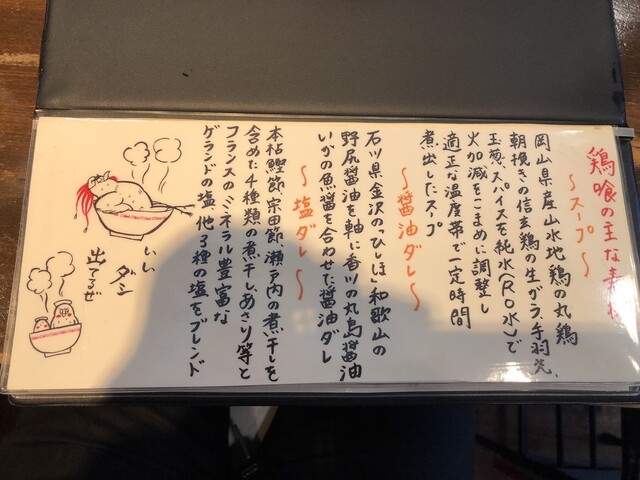 鶏喰の主な素材
～スープ～
岡山県産山水地鶏の丸鶏
朝挽きの信玄鶏の生がラ、手羽先、
玉葱、スパイスを純水(RO水)で
火加減をこまめに調整し
適正な温度帯で一定時間
煮出したスープ
～醤油ダレ～
石川県金沢の「ひしほ」和歌山の
野尻醤油を軸に香川の丸島醤油
いかの魚醤を合わせた醤油ダレ
～塩ダレ～
本枯鰹節、宗田節、瀬戸内の煮干しを
含めた4種類の煮干し、あさり等と
フランスのミネラル豊富な
ゲランドの塩、他3種の塩をブレンド
いい
ダシ
出てるぜ